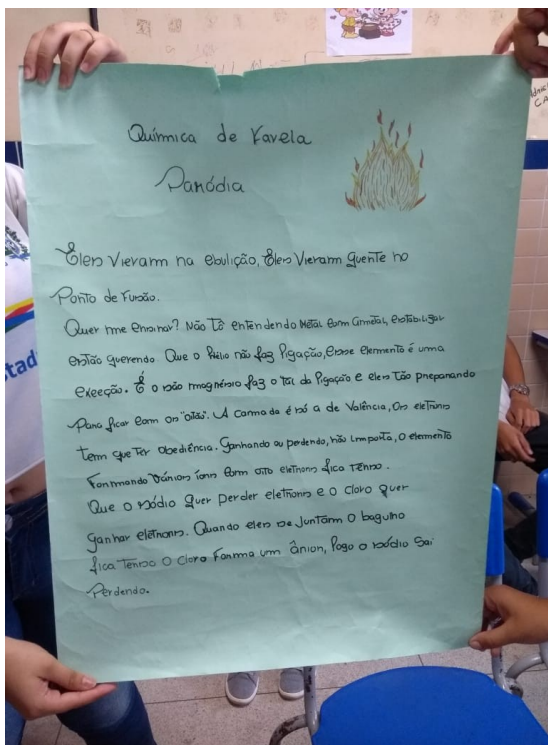 Química de Favela
Paródia
Eles Vieram na ebulição, Eles Vieram quente no
Ponto de Fusão.
Quer me ensinar? Não Tô entendendo Metal com Ametal, estabilizar
estão querendo. Que o Hélio não faz ligação, esse elemento é uma
exceção. E o são magnésio faz o tal da ligação e eles Tão preparando
Para ficar com os "oitão". A camada é só a de Valência, Os eletrons
tem que Ter obediência. Ganhando ou perdendo, não importa, o elemento
Formando Vários íons com oito eletrons fica Tenso.
Que o sódio quer perder eletrons e o cloro quer
ganhar elétrons. Quando eles se Juntam O bagulho
fica Tenso O cloro Forma um ânion, logo o sódio Sai
Perdendo.
tad